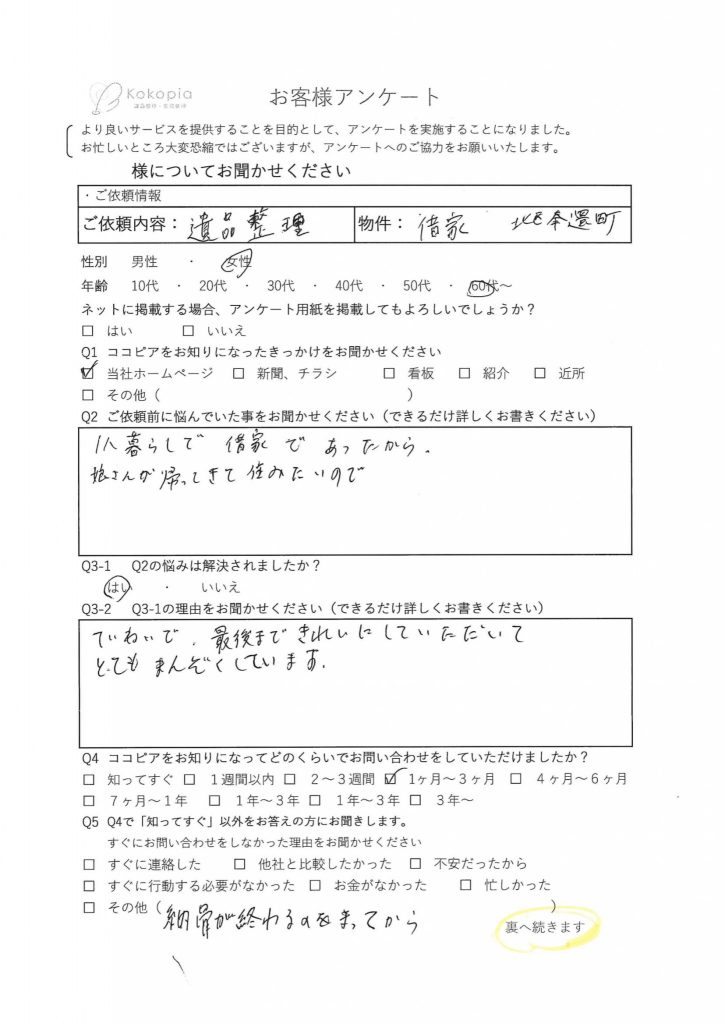 Kokopia
お客様アンケート
より良いサービスを提供することを目的として、アンケートを実施することになりました。
お忙しいところ大変恐縮ではございますが、アンケートへのご協力をお願いいたします。
様についてお聞かせください
・ご依頼情報
ご依頼内容： 遺品整理 物件： 借家
性別 男性 ・ 女性
年齢 10代 ・ 20代 ・ 30代 ・ 40代 ・ 50代 ・ 60代～
ネットに掲載する場合、アンケート用紙を掲載してもよろしいでしょうか？
□ はい □ いいえ
Q1 ココピアをお知りになったきっかけをお聞かせください
☑ 当社ホームページ □ 新聞、チラシ □ 看板 □ 紹介 □ 近所
□ その他（ ）
Q2 ご依頼前に悩んでいた事をお聞かせください（できるだけ詳しくお書きください）
1人暮らしで 借家で あったから、
娘さんが帰ってきて住みたいので
Q3-1 Q2の悩みは解決されましたか？
はい ・ いいえ
Q3-2 Q3-1の理由をお聞かせください（できるだけ詳しくお書きください）
ていねいで、最後まできれいにしていただいて
とてもまんぞくしています。
Q4 ココピアをお知りになってどのくらいでお問い合わせをしていただけましたか？
□ 知ってすぐ □ １週間以内 □ ２～３週間 ☑ １ヶ月～３ヶ月 □ ４ヶ月～６ヶ月
□ ７ヶ月～１年 □ １年～３年 □ １年～３年 □ ３年～
Q5 Q4で「知ってすぐ」以外をお答えの方にお聞きします。
すぐにお問い合わせをしなかった理由をお聞かせください
□ すぐに連絡した □ 他社と比較したかった □ 不安だったから
□ すぐに行動する必要がなかった □ お金がなかった □ 忙しかった
□ その他（ 納骨が終わるのをまってから ）
裏へ続きます